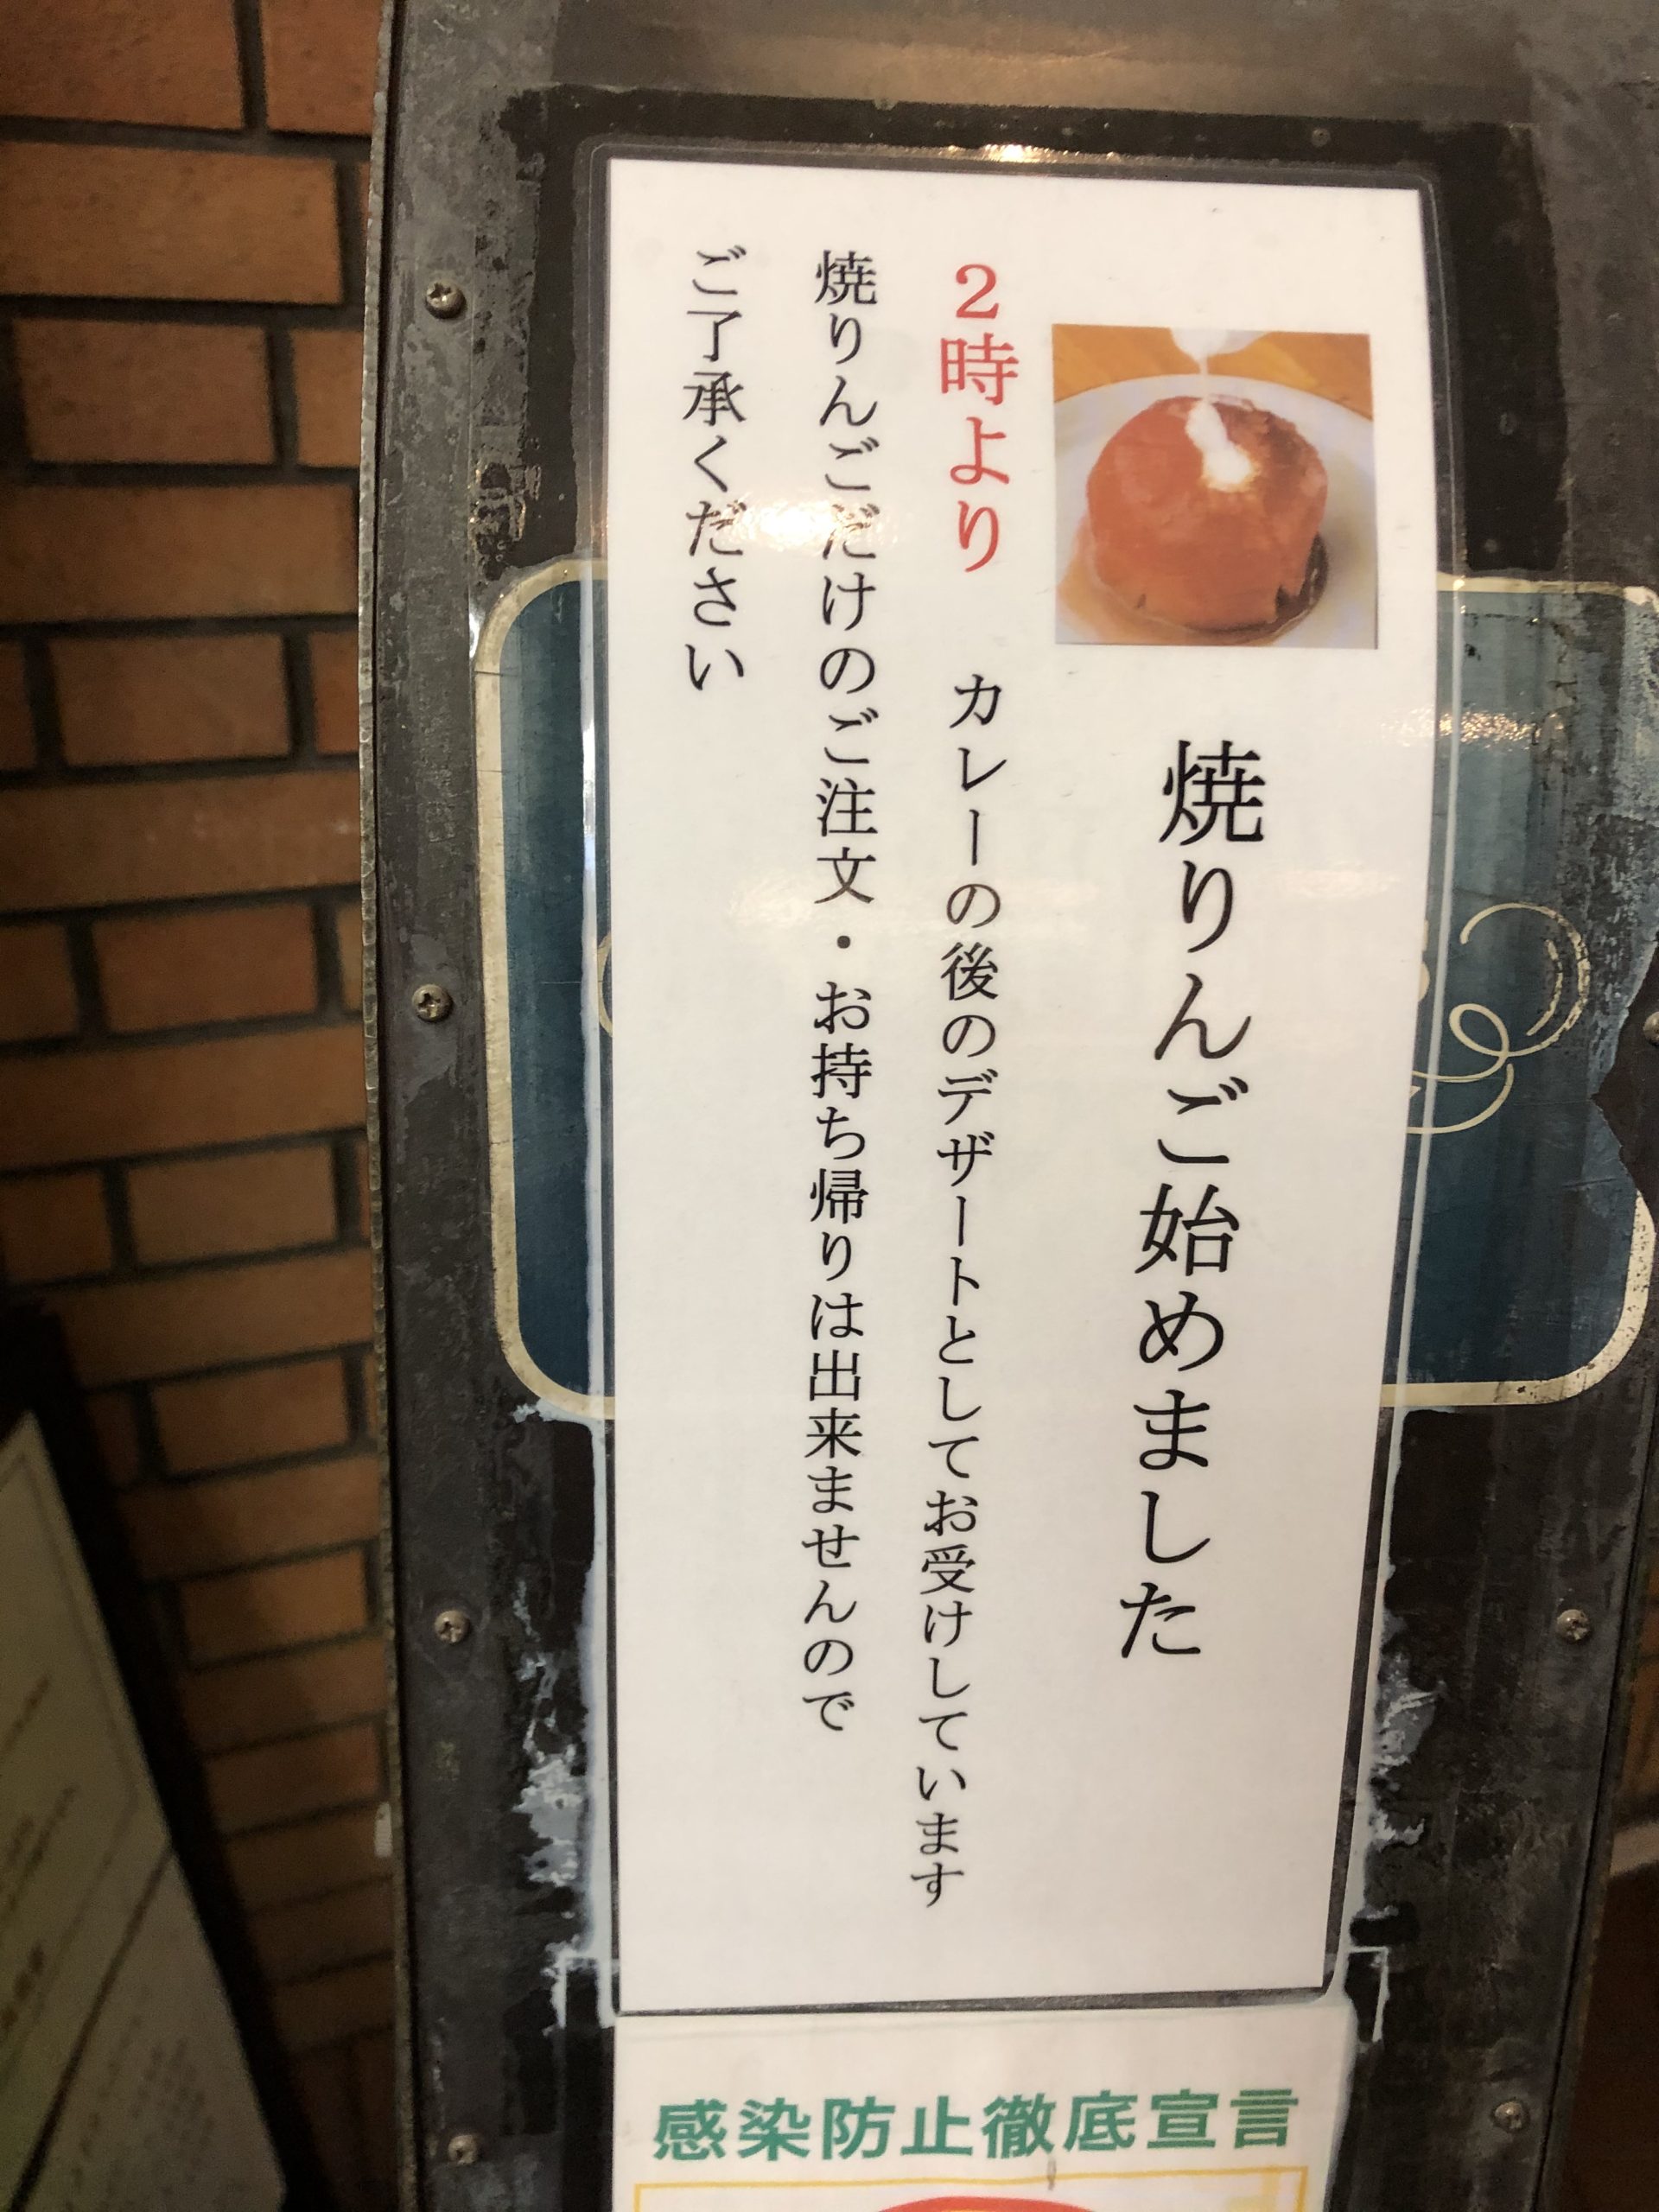 焼りんご始めました
2時より カレーの後のデザートとしてお受けしています
焼りんごだけのご注文・お持ち帰りは出来ませんので
ご了承ください
感染防止徹底宣言